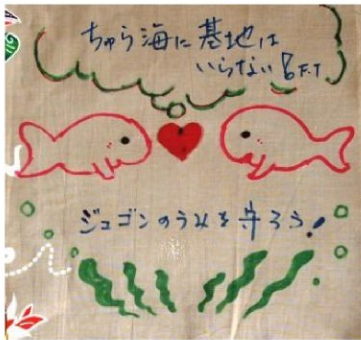 ちゅら海に基地は
いらない F.T
ジュゴンのうみを守ろう!